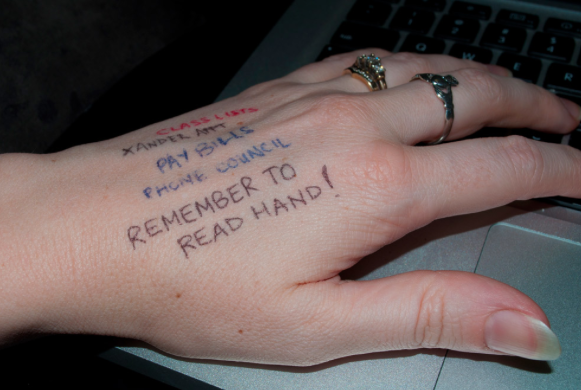 CLASS LISTS
XANDER APPT
PAY BILLS
PHONE COUNCIL
REMEMBER TO
READ HAND!